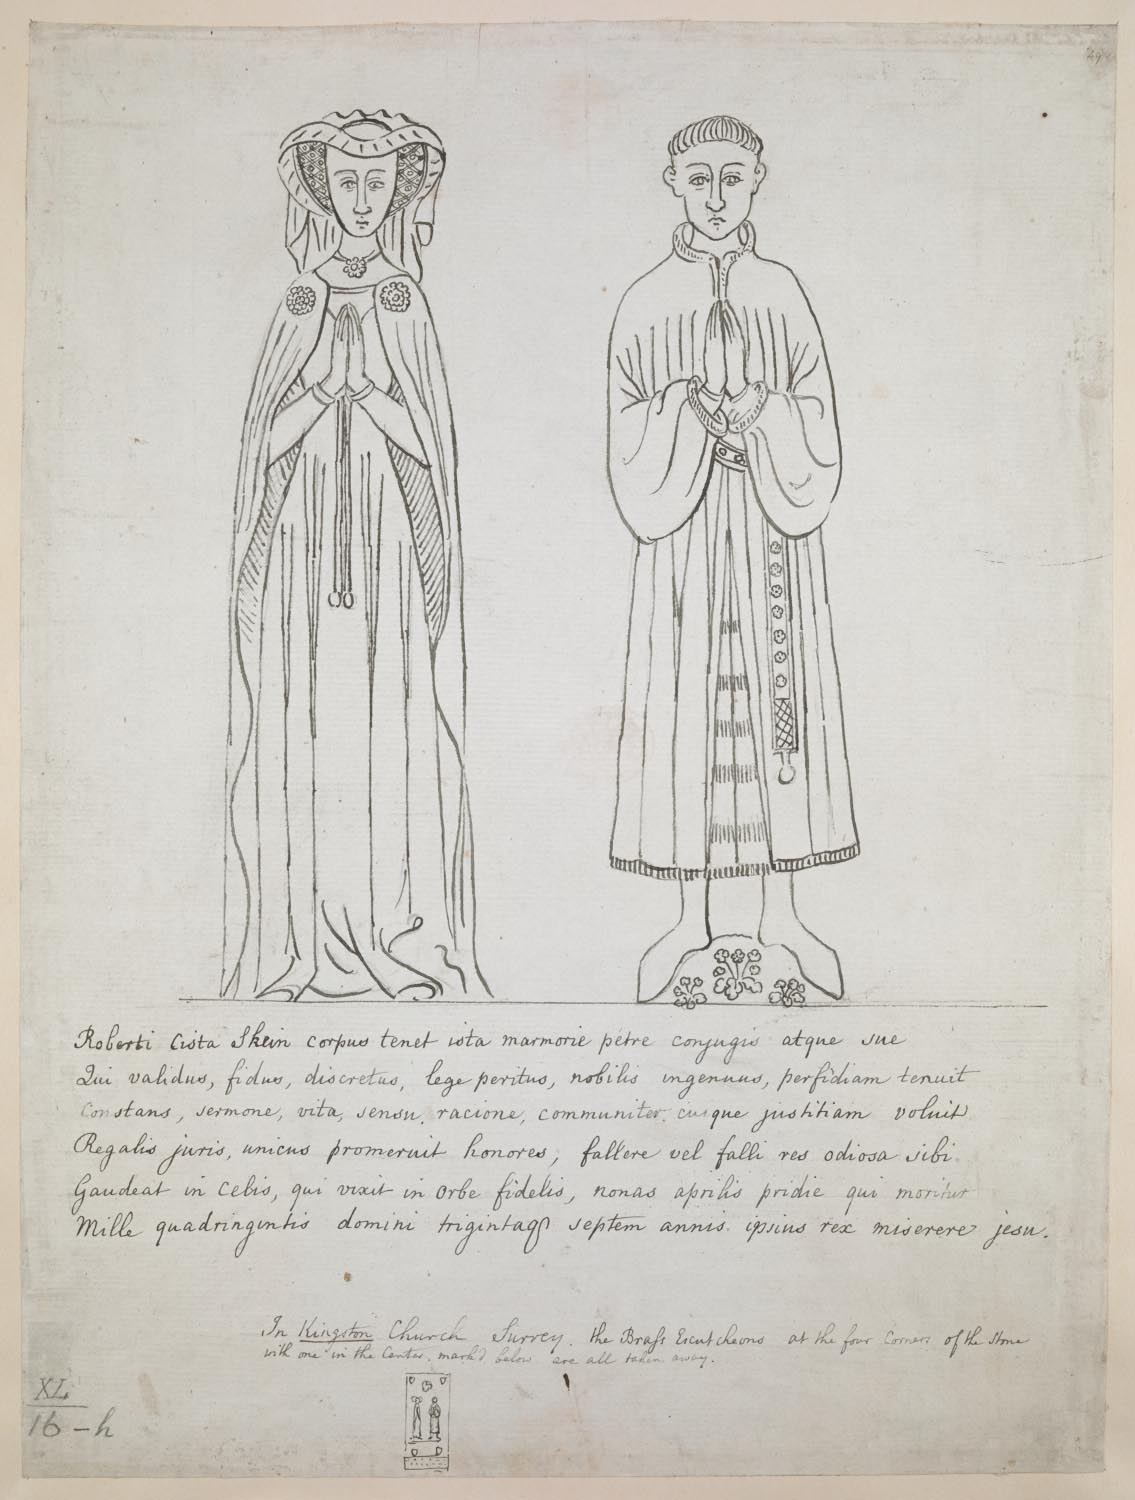 49
Roberti Cista Skein corpus tenet ista marmorie petre conjugis atque sue
Qui validus, fidus, discretus, lege peritus, nobilis ingenuus, perfidiam tenuit
Constans, sermone, vita, sensu, racione, communiter cuique justitiam voluit
Regalis juris, unicus promeruit honores, fallere vel falli res odiosa sibi
Gaudeat in celis, qui vixit in orbe fidelis, nonas aprilis pridie qui moritur
Mille quadringintis domini trigintaq septem annis ipsius rex miserere jesu.
In Kingston Church Surrey. the Brass Escutcheons at the four Corners of the Stone
with one in the Center. mark'd below are all taken away.
XL
16-h